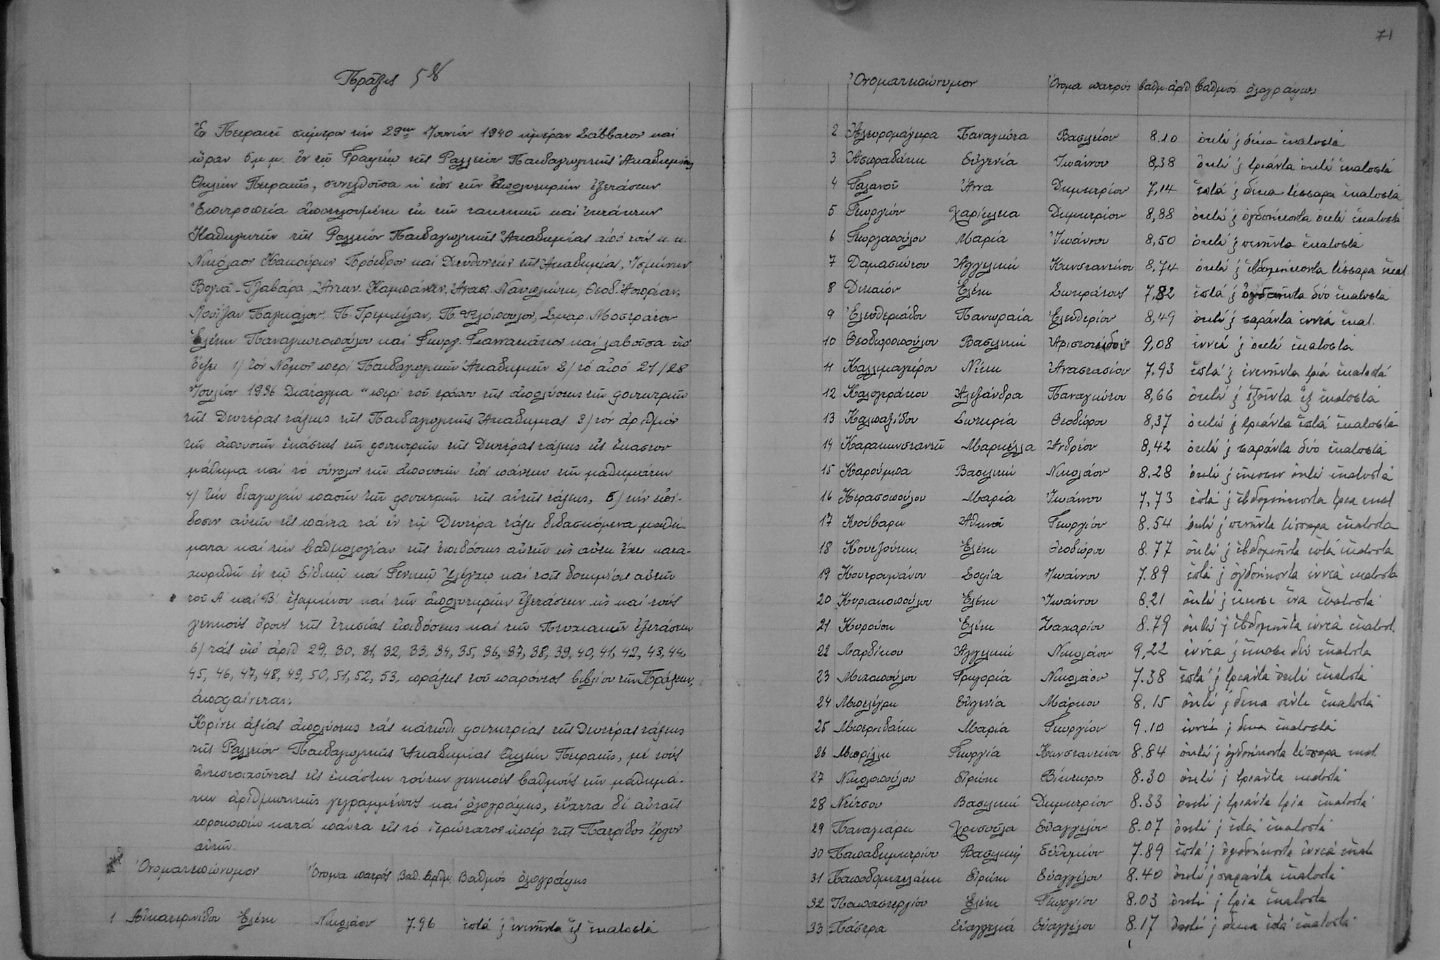 Πρᾶξις 58
Ἐν Πειραιεῖ σήμερον τὴν 29ην Ἰουνίου 1940 ἡμέραν Σάββατον καὶ
ὥραν 5 μ.μ. ἐν τῷ Γραφείῳ τῆς Ραλλείου Παιδαγωγικῆς Ἀκαδημίας
Θηλέων Πειραιῶς, συνελθοῦσα ἡ ἐπὶ τῶν ἀπολυτηρίων ἐξετάσεων
Ἐπιτροπεία ἀποτελουμένη ἐκ τῶν τακτικῶν καὶ ἐκτάκτων
Καθηγητῶν τῆς Ραλλείου Παιδαγωγικῆς Ἀκαδημίας ἀπὸ τοὺς κ.κ.
Νικόλαον Κακούρον Πρόεδρον καὶ Διευθυντὴν τῆς Ἀκαδημίας,
Παγκάλου, Π. Γρεμπέλαν, Π. Φιλόπουλον, Σμαρ.
Ἑλένην Παναγιωτοπούλου καὶ Γεωργ. καὶ λαβοῦσα ὑπ'
ὄψει 1/ τὸν Νόμον περὶ Παιδαγωγικῶν Ἀκαδημιῶν 2/ τὸ ἀπὸ 21/28
Ἰουλίου 1936 Διάταγμα "περὶ τοῦ τρόπου τῆς ἀπολύσεως τῶν φοιτητριῶν
τῆς Δευτέρας τάξεως τῆς Παιδαγωγικῆς Ἀκαδημίας 3/ τὸν ἀριθμὸν
τῶν ἀπουσιῶν ἑκάστης τῶν φοιτητριῶν τῆς Δευτέρας τάξεως εἰς ἕκαστον
μάθημα καὶ τὸ σύνολον τῶν ἀπουσιῶν ἐπὶ πάντων τῶν μαθημάτων
4/ τὴν διαγωγὴν πασῶν τῶν φοιτητριῶν τῆς αὐτῆς τάξεως, 5/ τὴν ἐπί-
δοσιν αὐτῶν εἰς πάντα τὰ ἐν τῇ Δευτέρᾳ τάξει διδασκόμενα μαθή-
ματα καὶ τὴν βαθμολογίαν τῆς ἐπιδόσεως αὐτῶν ὡς αὕτη ἔχει κατα-
χωρηθῆ ἐν τῷ Εἰδικῷ καὶ Γενικῷ Ἐλέγχῳ καὶ τοῖς δοκιμίοις αὐτῶν
τοῦ Α' καὶ Β' ἑξαμήνου καὶ τῶν ἀπολυτηρίων ἐξετάσεων ὡς καὶ τοὺς
γενικοὺς ὅρους τῆς ἐτησίας ἐπιδόσεως καὶ τῶν Πτυχιακῶν ἐξετάσεων
6/ τὰς ὑπ' ἀριθ 29, 30, 31, 32, 33, 34, 35, 36, 37, 38, 39, 40, 41, 42, 43, 44,
45, 46, 47, 48, 49, 50, 51, 52, 53, πράξεις τοῦ παρόντος βιβλίου τῶν Πράξεων,
ἀποφαίνεται.
Κρίνει ἀξίας ἀπολύσεως τὰς κάτωθι φοιτητρίας τῆς Δευτέρας τάξεως
τῆς Ραλλείου Παιδαγωγικῆς Ἀκαδημίας Θηλέων Πειραιῶς, μὲ τοὺς
ἀντιστοιχοῦντας εἰς ἑκάστην τούτων γενικοὺς βαθμοὺς τῶν μαθημά-
των ἀριθμητικῶς γεγραμμένους καὶ ὁλογράφως, εὔχεται δὲ αὐταῖς
προκοπὴν κατὰ πάντα εἰς τὸ ἱερώτατον ὑπὲρ τῆς Πατρίδος ἔργον
αὐτῶν.
Ὀνοματεπώνυμον Ὄνομα πατρός Βαθ. ἀριθμ. Βαθμός ὁλογράφως
1 Αἰκατερινίδου Ἑλένη Νικολάου 7.96 ἑπτά ἐνενῆντα ἕξ ἑκατοστά
71
Ὀνοματεπώνυμον Ὄνομα πατρός Βαθμ. ἀριθ Βαθμός ὁλογράφως
2 Ἀλευρομάγειρα Παναγιώτα Βασιλείου 8.10 ὀκτώ δέκα ἑκατοστά
3 Ἀσπραδάκη Εὐγενία Ἰωάννου 8,38 ὀκτώ τριάντα ὀκτώ ἑκατοστά
4 Γαλανοῦ Ἄννα Δημητρίου 7,14 ἑπτά δέκα τέσσαρα ἑκατοστά
5 Γεωργίου Χαρίκλεια Δημητρίου 8,88 ὀκτώ ὀγδοήκοντα ὀκτώ ἑκατοστά
6 Γεωργοπούλου Μαρία Ἰωάννου 8,50 ὀκτώ πενῆντα ἑκατοστά
7 Δαμασκηνοῦ Ἀγγελική Κωνσταντίνου 8,74 ὀκτώ ἑβδομήκοντα τέσσαρα ἑκατ.
8 Δικαίου Ἑλένη Σωκράτους 7,82 ἑπτά ὀγδοῆντα δύο ἑκατοστά
9 Ἐλευθεριάδου Πανωραία Ἐλευθερίου 8,49 ὀκτώ σαράντα ἐννέα ἑκατ.
10 Θεοδωροπούλου Βασιλική Ἀριστείδου 9,08 ἐννέα ὀκτώ ἑκατοστά
11 Καλλιμαγέρου Νίκη Ἀναστασίου 7,93 ἑπτά ἐνενῆντα τρία ἑκατοστά
12 Καλογεράτου Ἀλεξάνδρα Παναγιώτου 8,66 ὀκτώ ἑξῆντα ἕξ ἑκατοστά
13 Καλπαξίδου Σωτηρία Θεοδώρου 8,37 ὀκτώ τριάντα ἑπτά ἑκατοστά
14 Καρακωνσταντῆ Μαρκέλλα Ἀνδρέου 8,42 ὀκτώ σαράντα δύο ἑκατοστά
15 Καρούμπα Βασιλική Νικολάου 8.28 ὀκτώ εἴκοσιν ὀκτώ ἑκατοστά
16 Κερασοπούλου Μαρία Ἰωάννου 7,73 ἑπτά ἑβδομήκοντα τρία ἑκατ
17 Κούβαρη Ἀθηνᾶ Γεωργίου 8.54 ὀκτώ πενῆντα τέσσαρα ἑκατοστά
18 Κουεζούκη Ἑλένη Θεοδώρου 8.77 ὀκτώ ἑβδομῆντα ἑπτά ἑκατοστά
19 Κουτραμάνου Σοφία Ἰωάννου 7.89 ἑπτά ὀγδοήκοντα ἐννέα ἑκατοστά
20 Κυριακοπούλου Ἑλένη Ἰωάννου 8.21 ὀκτώ εἴκοσι ἕνα ἑκατοστά
21 Κυρούση Ἑλένη Ζαχαρίου 8.79 ὀκτώ ἑβδομῆντα ἐννέα ἑκατοστ.
22 Μαρδίκου Ἀγγελική Νικολάου 9,22 ἐννέα εἴκοσι δύο ἑκατοστά
23 Μιχοπούλου Γρηγορία Νικολάου 7.38 ἑπτά τριάντα ὀκτώ ἑκατοστά
24 Μπελέγρη Εὐγενία Μάρκου 8.15 ὀκτώ δέκα πέντε ἑκατοστά
25 Μπερνιδάκη Μαρία Γεωργίου 9.10 ἐννέα δέκα ἑκατοστά
26 Μπρίλλη Γεωργία Κωνσταντίνου 8.84 ὀκτώ ὀγδοήκοντα τέσσαρα ἑκατ
27 Νικολοπούλου Εἰρήνη Βίκτωρος 8.30 ὀκτώ τριάντα ἑκατοστά
28 Νέτσου Βασιλική Δημητρίου 8.33 ὀκτώ τριάντα τρία ἑκατοστά
29 Παναγιάρη Χρυσούλα Εὐαγγέλου 8.07 ὀκτώ ἑπτά ἑκατοστά
30 Παπαδημητρίου Βασιλική Εὐθυμίου 7.89 ἑπτά ὀγδοήκοντα ἐννέα ἑκατ
31 Παπαδομιχελάκη Εἰρήνη Εὐαγγέλου 8.40 ὀκτώ σαράντα ἑκατοστά
32 Παπαστεργίου Ἑλένη Γεωργίου 8.03 ὀκτώ τρία ἑκατοστά
33 Πάσσρα Εὐαγγελία Εὐαγγέλου 8.17 ὀκτώ δέκα ἑπτά ἑκατοστά